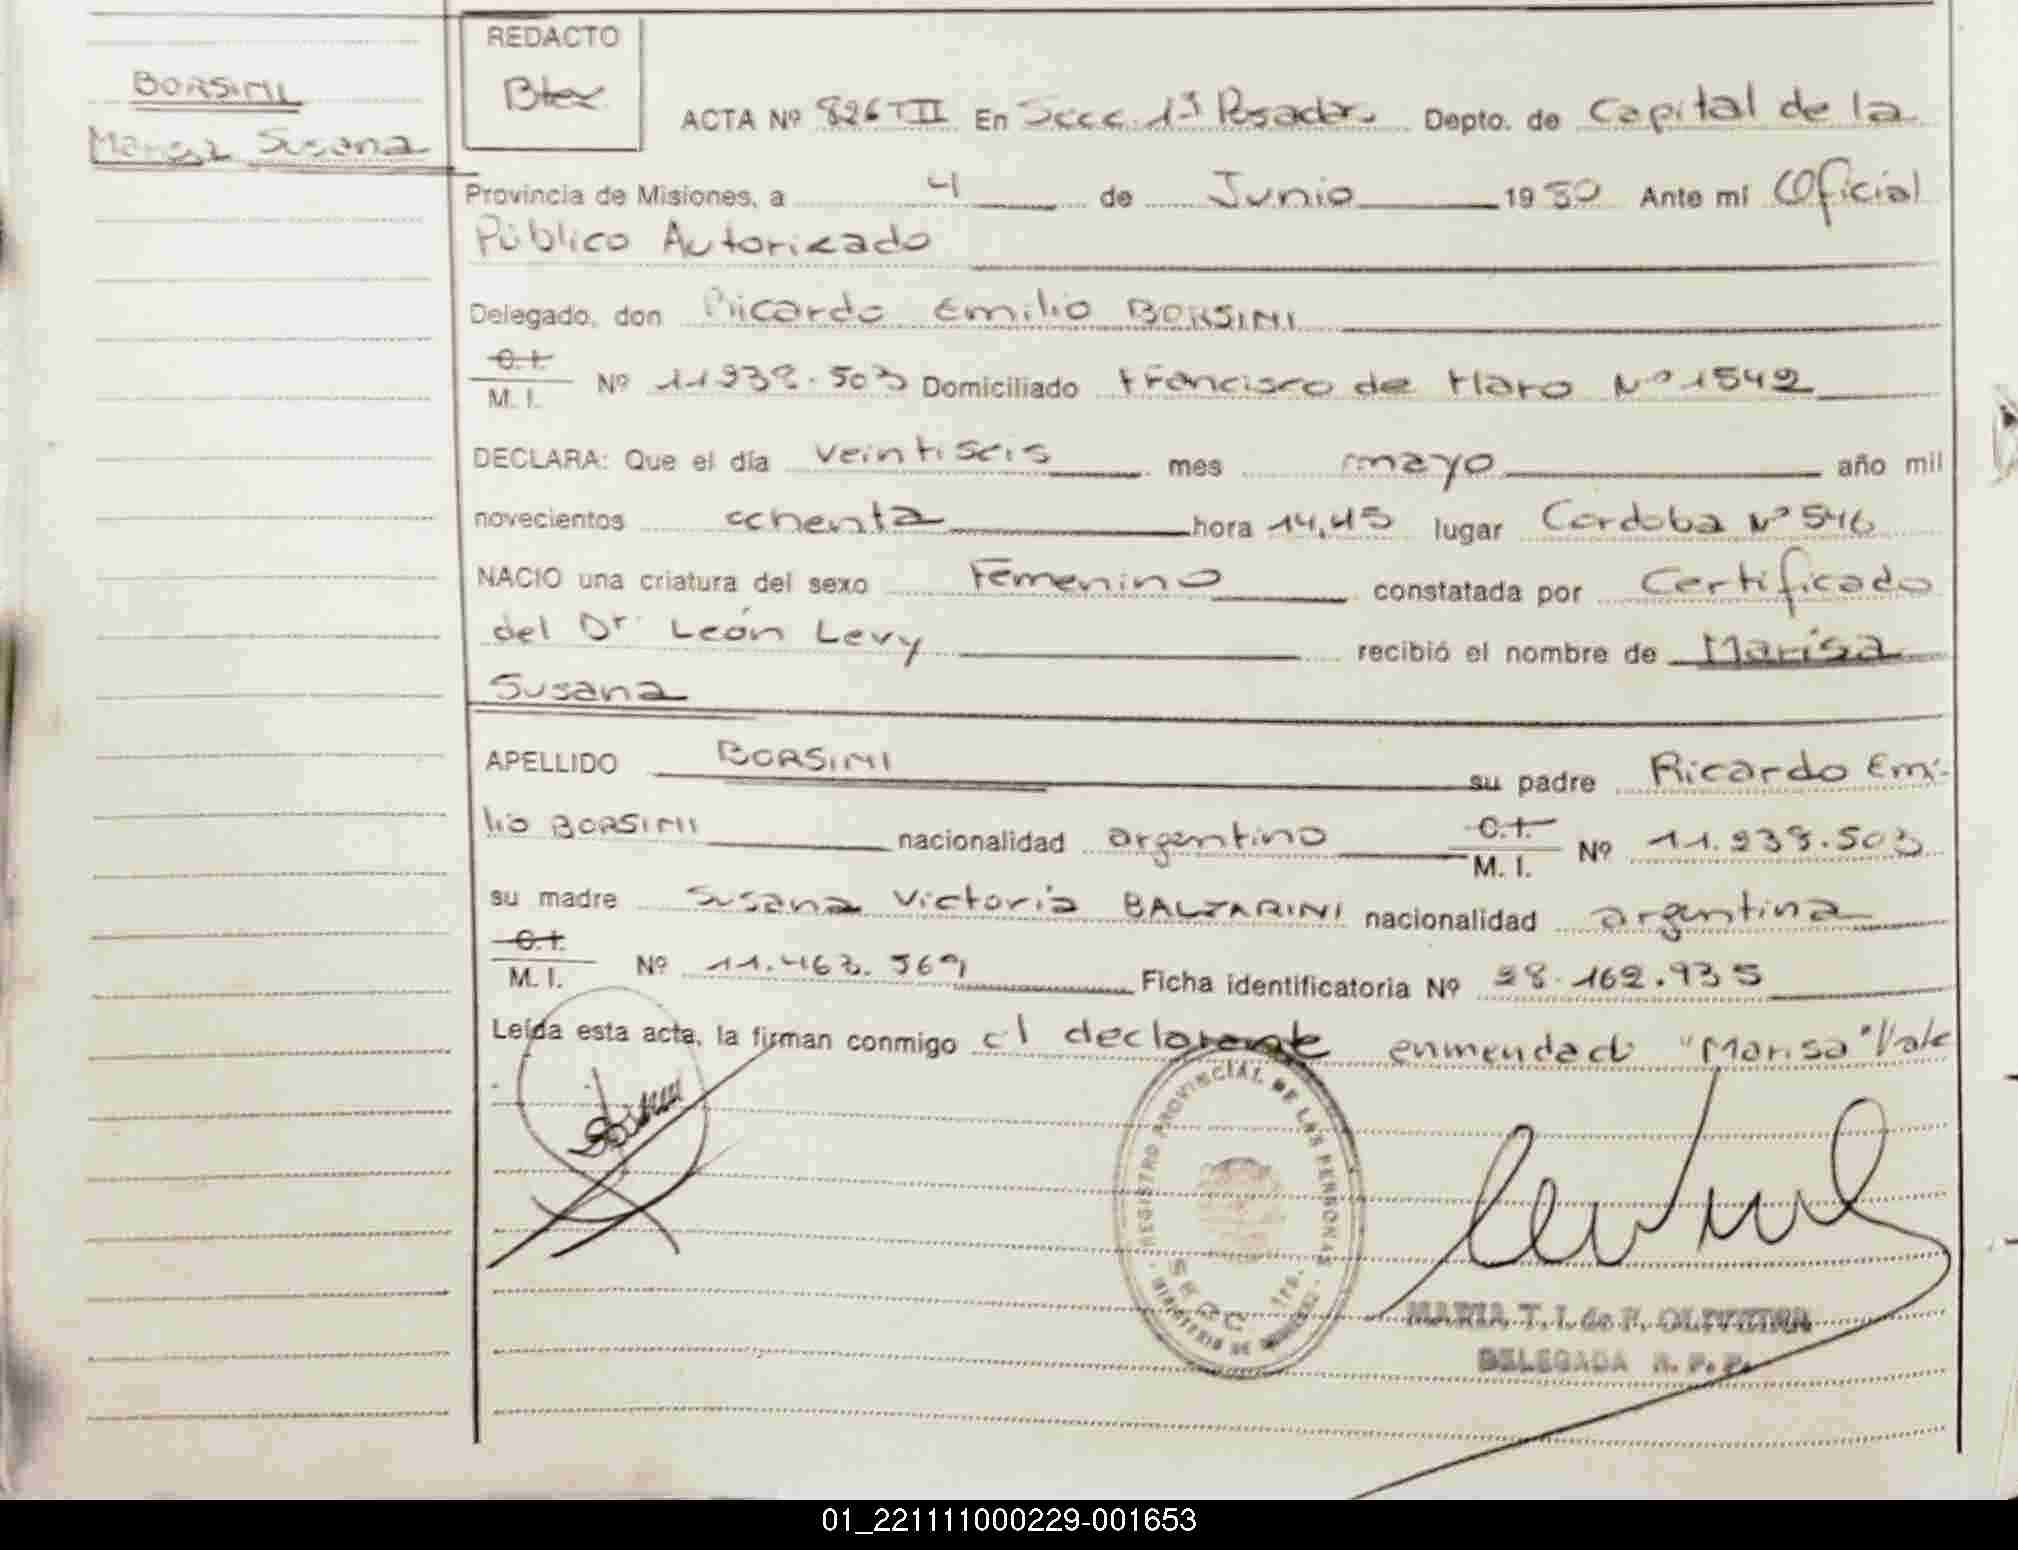 BORSINI
Marisa Susana
REDACTO
ACTA Nº 826 TII En Secc. 1ª Posadas Depto. de Capital de la
Provincia de Misiones, a 4 de Junio 1980 Ante mí Oficial
Público Autorizado
Delegado, don Ricardo Emilio BORSINI
C. I.
M. I. Nº 11.938.503 Domiciliado Francisco de Haro Nº 1542
DECLARA: Que el día veintiseis mes mayo año mil
novecientos ochenta hora 14,45 lugar Cordoba Nº 546
NACIO una criatura del sexo Femenino constatada por Certificado
del Dr. León Levy recibió el nombre de Marisa
Susana
APELLIDO BORSINI su padre Ricardo Emi-
lio BORSINI nacionalidad argentino C. I. M. I. Nº 11.938.503
su madre Susana Victoria BALZARINI nacionalidad argentina
C. I.
M. I. Nº 11.463.569 Ficha identificatoria Nº 28.162.935
Leída esta acta, la firman conmigo el declarante enmendado "Marisa" Vale
REGISTRO PROVINCIAL DE LAS PERSONAS
MINISTERIO DE
MARIA T. I. de F. OLIVEIRA
DELEGADA R. P. P.
01_221111000229-001653